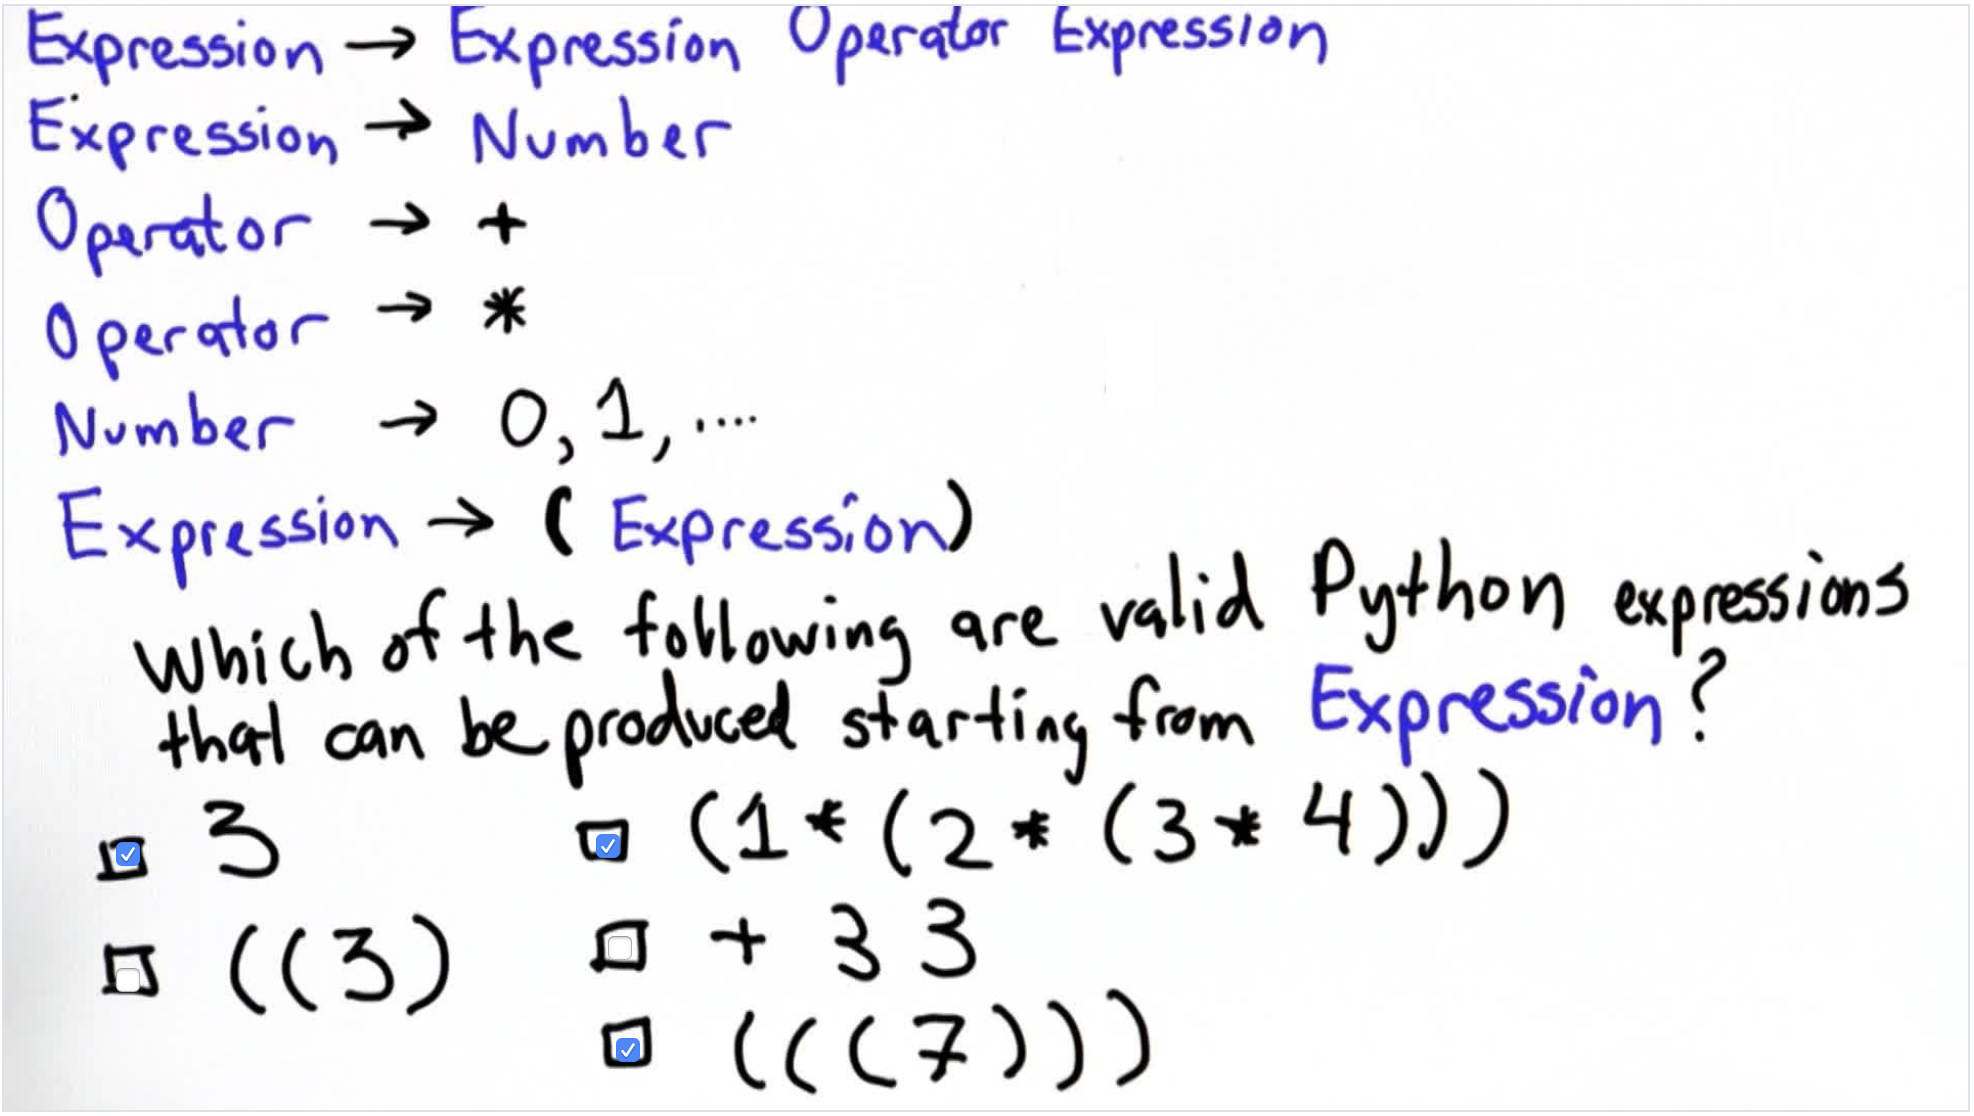 Expression → Expression Operator Expression
Expression → Number
Operator → +
Operator → *
Number → 0, 1, ....
Expression → ( Expression )
Which of the following are valid Python expressions
that can be produced starting from Expression?
3 (1 * (2 * (3 * 4)))
((3) + 3 3
(((7)))